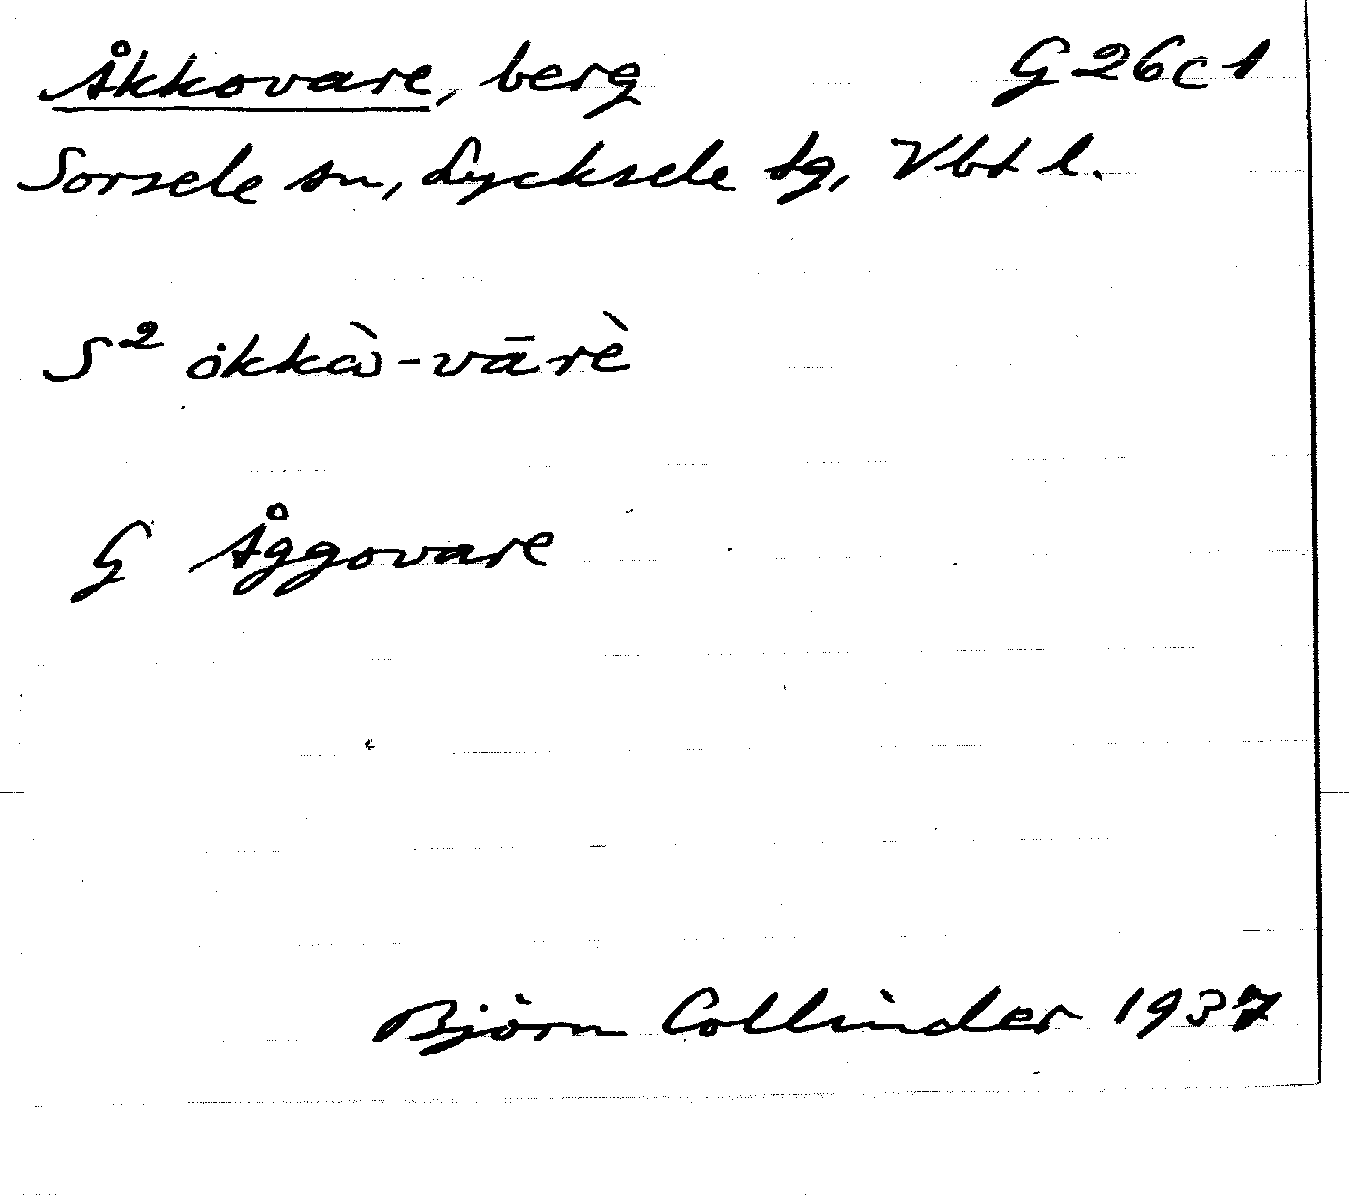 Åkkovare, berg G 26 c 1
Sorsele sn, Lycksele tg, Vbt l.
S² ȯkkὼ-vārὲ
G Åggovare
Björn Collinder 1937